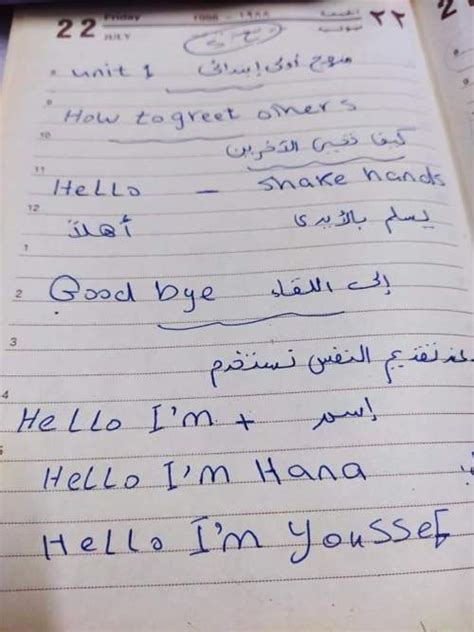 22 Friday 1988 - ١٩٨٨ الجمعة ٢٢
JULY يوليه
unit 1 منهج أولى إبتدائى
9
How to greet others
10
كيف نحيى الآخرين
11
Hello - shake hands
12
أهلاً يسلم بالأيدى
1
2 Good bye إلى اللقاء
3
عند تقديم النفس نستخدم
4
Hello I'm + إسم
Hello I'm Hana
Hello I'm Youssef